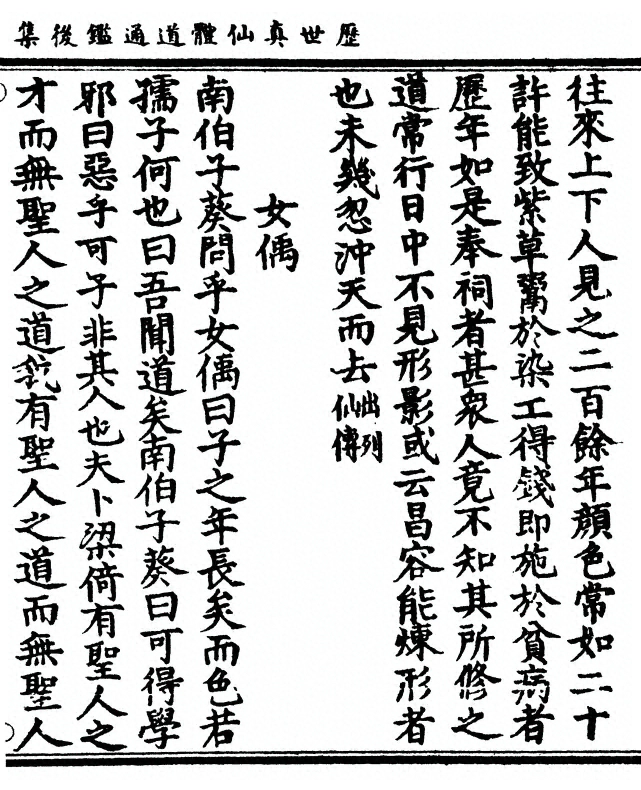 歷世真仙體道通鑑後集
往來上下人見之二百餘年顏色常如二十
許能致紫草鬻於染工得錢即施於貧病者
歷年如是奉祠者甚衆人竟不知其所修之
道常行日中不見形影或云昌容能煉形者
也未幾忽沖天而去出列仙傳
女偊
南伯子葵問乎女偊曰子之年長矣而色若
孺子何也曰吾聞道矣南伯子葵曰可得學
邪曰惡乎可子非其人也夫卜梁倚有聖人之
才而無聖人之道我有聖人之道而無聖人